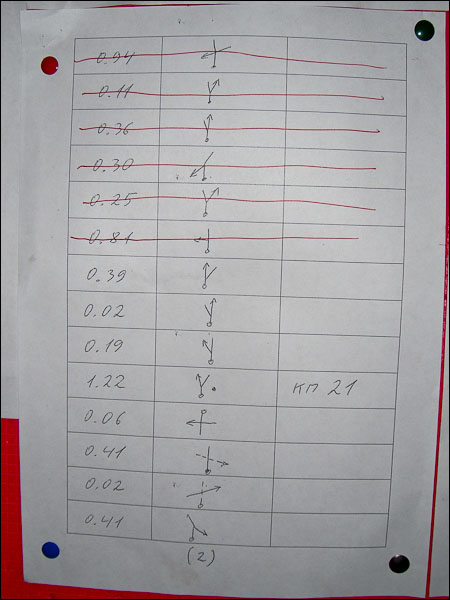 0.94
0.11
0.36
0.30
0.25
0.81
0.39
0.02
0.19
1.22 КП 21
0.06
0.41
0.02
0.41
(2)